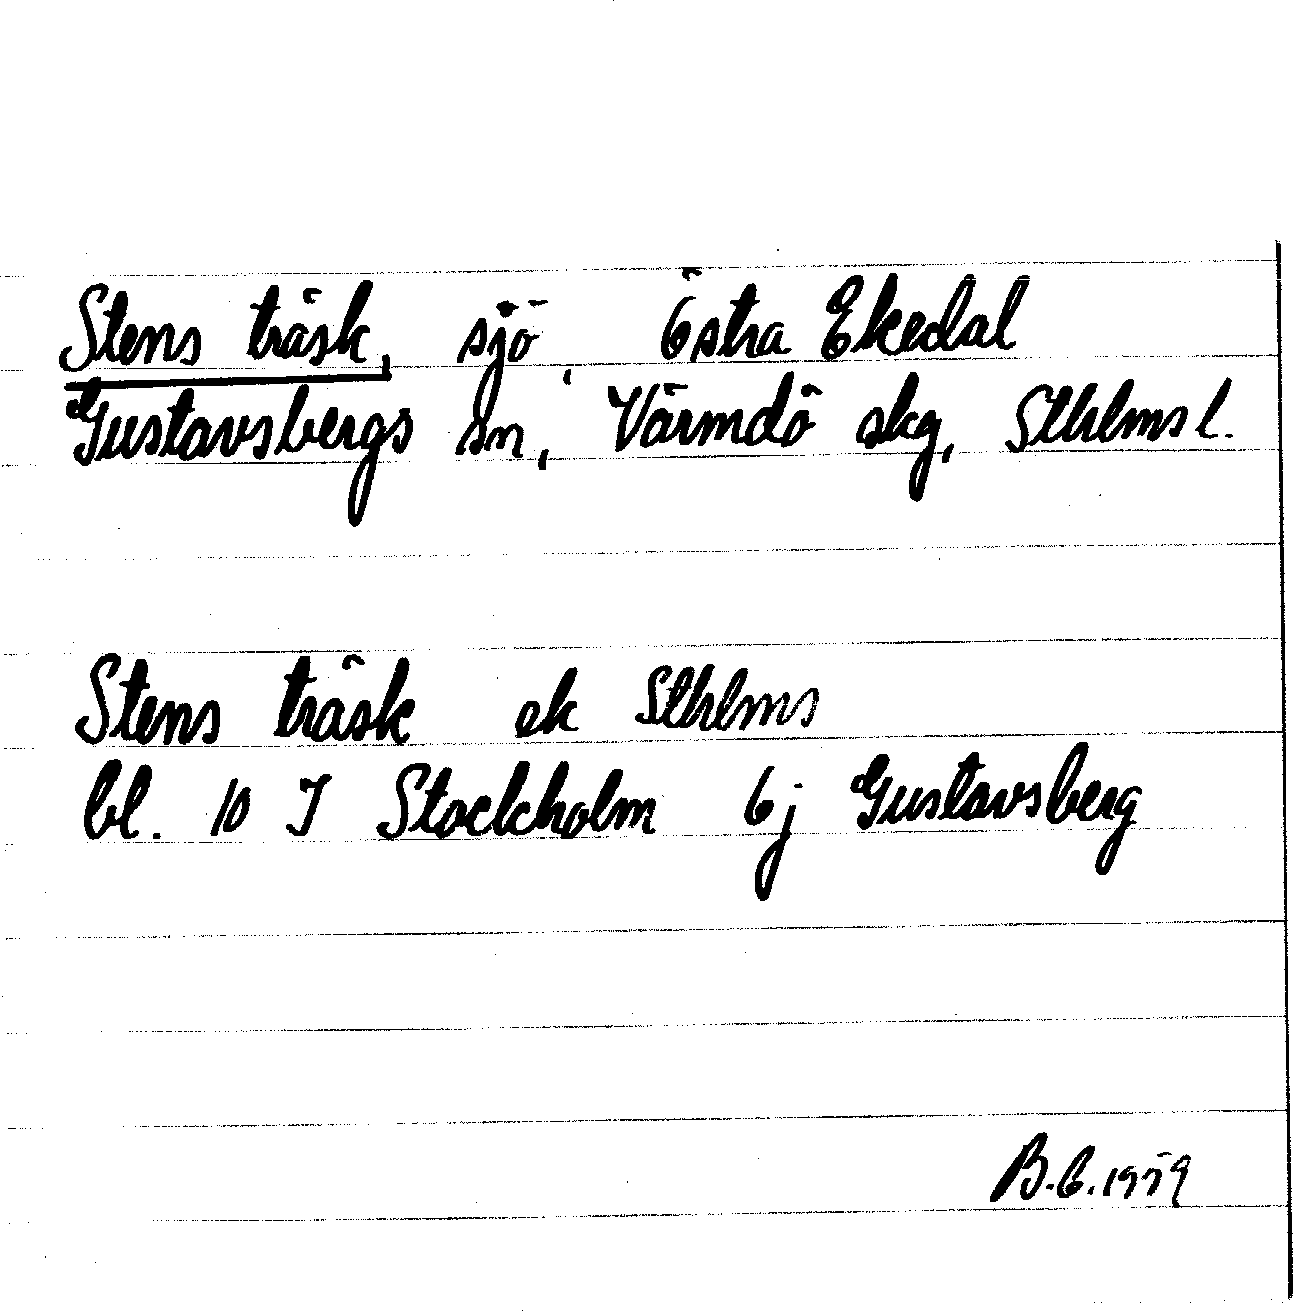 Stens träsk, sjö, Östra Ekedal
Gustavsbergs sn, Värmdö skg, Sthlms l.
Stens träsk ek Sthlms
bl. 10 I Stockholm 6j Gustavsberg
B.G. 1959